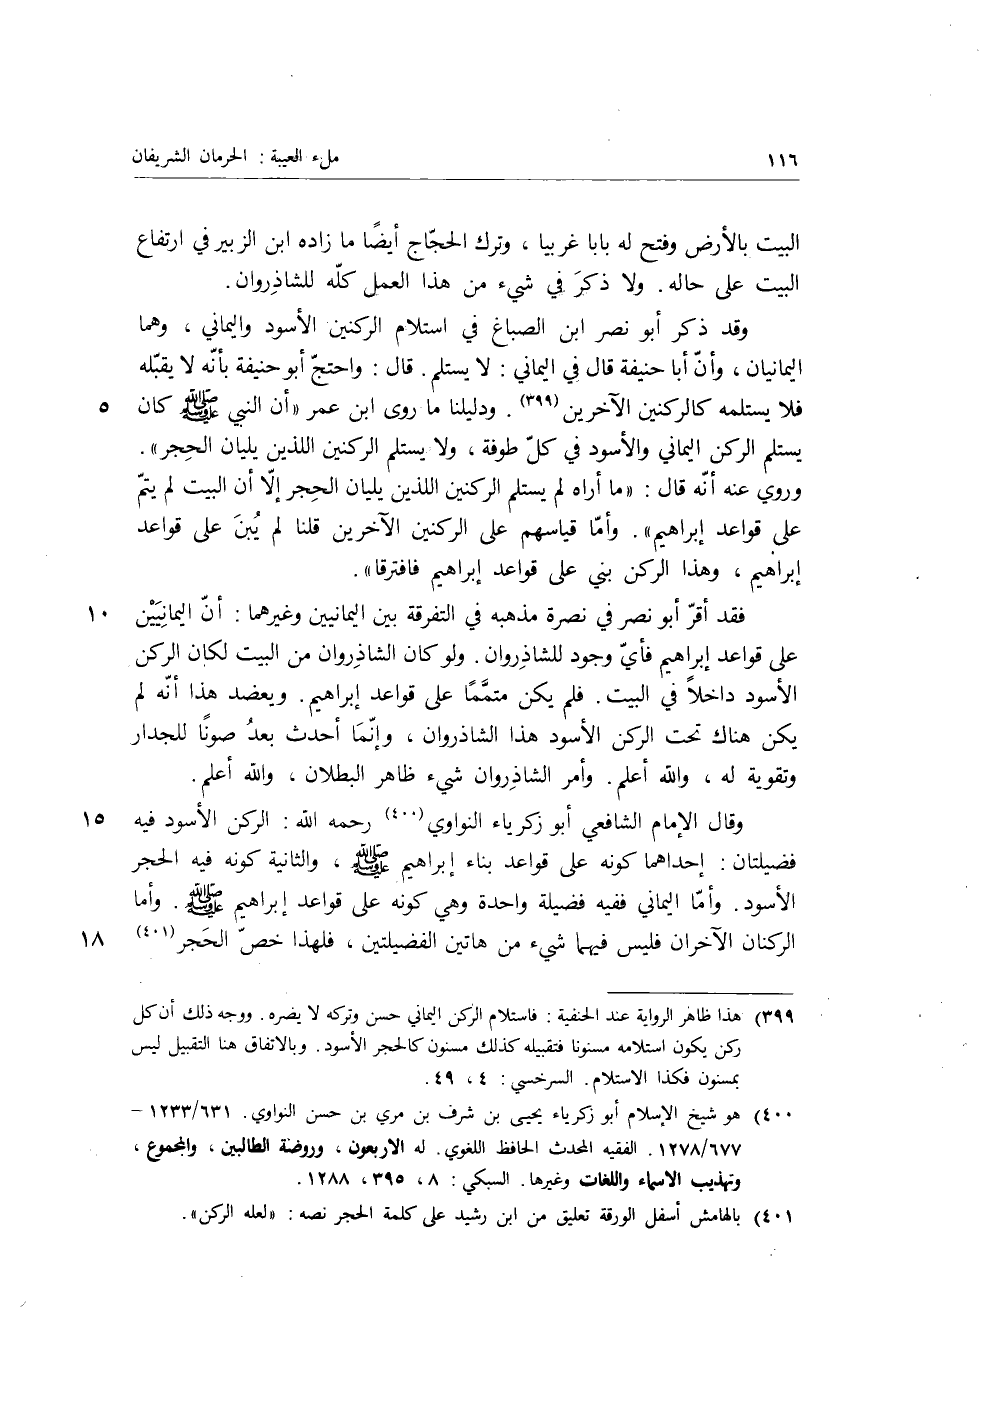 ١١٦ ملء العيبة : الحرمان الشريفان
البيت بالأرض وفتح له بابا غربيا ، وترك الحجّاج أيضًا ما زاده ابن الزبير في ارتفاع
البيت على حاله. ولا ذكرَ في شيء من هذا العمل كلّه للشاذِروان.
وقد ذكر أبو نصر ابن الصباغ في استلام الركنين الأسود واليماني ، وهما
اليمانيان ، وأنّ أبا حنيفة قال في اليماني : لا يستلم. قال : واحتجّ أبو حنيفة بأنّه لا يقبّله
فلا يستلمه كالركنين الآخرين (٣٩٩) . ودليلنا ما روى ابن عمر «أن النبي ﷺ كان ٥
يستلم الركن اليماني والأسود في كلّ طوفة ، ولا يستلم الركنين اللذين يليان الحِجر».
وروي عنه أنّه قال : «ما أراه لم يستلم الركنين اللذين يليان الحِجر إلّا أن البيت لم يتمّ
على قواعد إبراهيم». وأمّا قياسهم على الركنين الآخرين قلنا لم يُبنَ على قواعد
إبراهيم ، وهذا الركن بني على قواعد إبراهيم فافترقا».
فقد أقرّ أبو نصر في نصرة مذهبه في التفرقة بين اليمانيين وغيرهما : أنّ اليمانِيَيْن ١٠
على قواعد إبراهيم فأيّ وجود للشاذِروان. ولو كان الشاذِروان من البيت لكان الركن
الأسود داخلاً في البيت. فلم يكن متمَّمًا على قواعد إبراهيم. ويعضد هذا أنّه لم
يكن هناك تحت الركن الأسود هذا الشاذروان ، وإنّمَا أحدث بعدُ صونًا للجدار
وتقوية له ، والله أعلم. وأمر الشاذِروان شيء ظاهر البطلان ، والله أعلم.
وقال الإمام الشافعي أبو زكرياء النواوي (٤٠٠) رحمه الله : الركن الأسود فيه ١٥
فضيلتان : إحداهما كونه على قواعد بناء إبراهيم ﷺ ، والثانية كونه فيه الحجر
الأسود. وأمّا اليماني ففيه فضيلة واحدة وهي كونه على قواعد إبراهيم ﷺ . وأما
الركنان الآخران فليس فيهما شيء من هاتين الفضيلتين ، فلهذا خصّ الحَجر (٤٠١) ١٨
٣٩٩) هذا ظاهر الرواية عند الحنفية : فاستلام الركن اليماني حسن وتركه لا يضره. ووجه ذلك أن كل
ركن يكون استلامه مسنونا فتقبيله كذلك مسنون كالحجر الأسود. وبالاتفاق هنا التقبيل ليس
بمسنون فكذا الاستلام. السرخسي : ٤ ، ٤٩.
٤٠٠) هو شيخ الإسلام أبو زكرياء يحيى بن شرف بن مري بن حسن النواوي. ١٢٣٣/٦٣١ –
١٢٧٨/٦٧٧. الفقيه المحدث الحافظ اللغوي. له الاربعون ، وروضة الطالبين ، والمجموع ،
وتهذيب الاسماء واللغات وغيرها. السبكي : ٨ ، ٣٩٥ ، ١٢٨٨.
٤٠١) بالهامش أسفل الورقة تعليق من ابن رشيد على كلمة الحجر نصه : «لعله الركن».